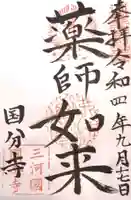 奉拝令和四年九月七日
薬師如来
三河國
国分寺